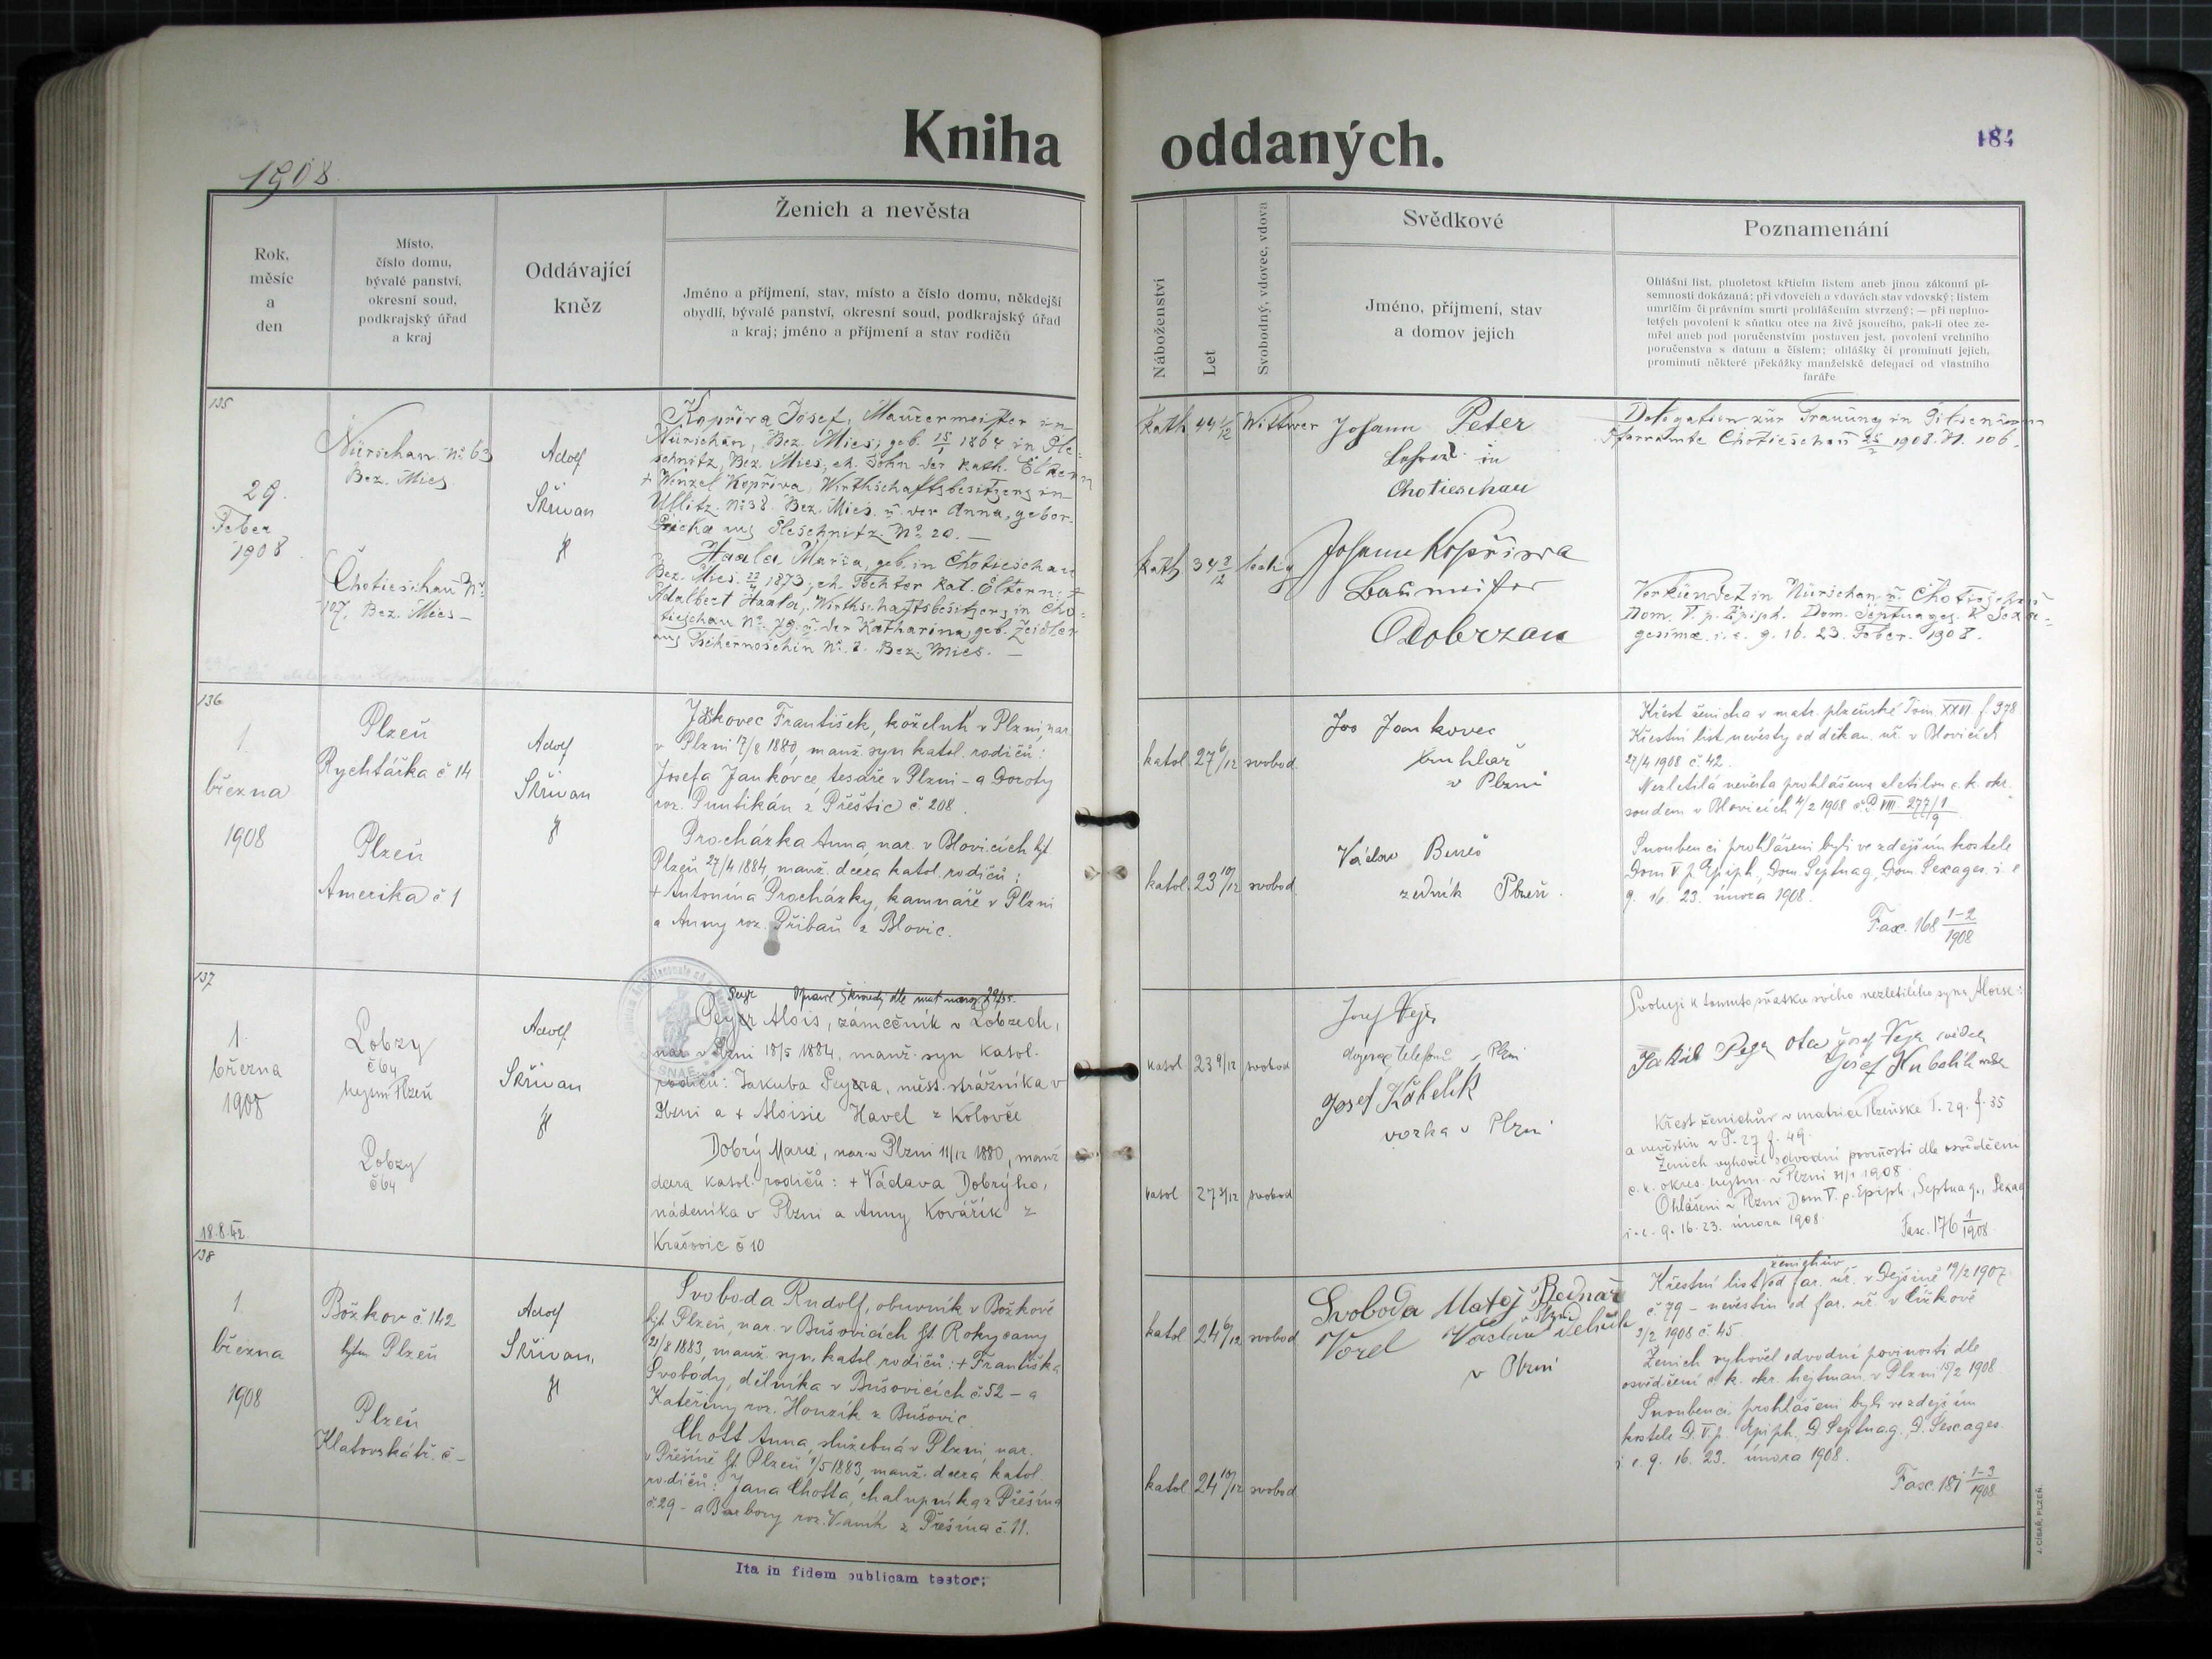 Kniha oddaných.
184
1908.
Rok,
měsíc
a
den
Místo,
číslo domu,
bývalé panství,
okresní soud,
podkrajský úřad
a kraj
Oddávající
kněz
Ženich a nevěsta
Jméno a příjmení, stav, místo a číslo domu, někdejší
obydlí, bývalé panství, okresní soud, podkrajský úřad
a kraj; jméno a příjmení a stav rodičů
Náboženství
Let
Svobodný, vdovec, vdova
Svědkové
Jméno, příjmení, stav
a domov jejich
Poznamenání
Ohlášní list, plnoletost křticím listem aneb jinou zákonní pí-
semností dokázaná; při vdovcích a vdovách stav vdovský; listem
umrlčím či právním smrti prohlášením stvrzený; — při neplno-
letých povolení k sňatku otce na živě jsoucího, pak-li otec ze-
mřel aneb pod poručenstvím postaven jest, povolení vrchního
poručenstva s datum a číslem; ohlášky či prominutí jejich,
prominutí některé překážky manželské delegací od vlastního
faráře
135
29.
Feber
1908.
Nürschan No 63
Bez. Mies
Chotieschau No
107. Bez. Mies –
Adolf
Skřivan
Kopřiva Josef, Maurermeister in
Nürschan, Bez. Mies, geb. 15/1 1864 in Ple-
schnitz, Bez. Mies, eh. Sohn der kath. Eltern
+ Wenzel Kopřiva, Wirthschaftsbesitzers in
Ullitz No 38. Bez. Mies. u. der Anna, gebor.
aus Pleschnitz No 20. —
Haala Maria, geb. in Chotieschau
Bez. Mies. 22/4 1873, eh. Tochter kat. Eltern: +
Adalbert Haala, Wirthschaftsbesitzers in Cho-
tieschau No 79. u. der Katharina, geb. Zeidler
aus Tschernoschin No 8. Bez. Mies. —
kath 44 1/12 Wittwer
kath 34 3/12 ledig
Johann Peter
in
Chotieschau
Johann Kopřiva
Baumeister
Dobrzan
Delegation zur Trauung in Pilsen vom
Pfarramte Chotieschau 25/2 1908. N. 106.
Verkündet in Nürschan u. Chotieschau
Dom. V. p. Epiph. Dom. Septuages. & Sexa-
gesimæ. i. e. 9. 16. 23. Feber. 1908.
136
1.
března
1908
Plzeň
Rychtářka č 14
Plzeň
Amerika č 1
Adolf
Skřivan
Jankovec František, koželuh v Plzni, nar.
v Plzni 17/8 1880, manž. syn katol. rodičů:
Josefa Jankovce, tesaře v Plzni – a Doroty
roz. Puntikán z Přeštic č. 208.
Procházka Anna, nar. v Blovicích hjt
Plzeň 27/4 1884, manž. dcera katol. rodičů:
+ Antonína Procházky, kamnáře v Plzni
a Anny roz. Přibáň z Blovic.
katol 27 6/12 svobod.
katol. 23 10/12 svobod
Jos Jankovec
truhlář
v Plzni
Václav Beneš
zedník Plzeň.
Křest ženicha v matr. plzeňské Tom. XXVI. f. 378
Křestní list nevěsty od děkan. úř. v Blovicích
27/4 1908 č. 42.
Nezletilá nevěsta prohlášena zletilou c. k. okr.
soudem v Blovicích 4/2 1908 č. P. VIII. 277/1 9
Snoubenci prohlášeni byli ve zdejším kostele
Dom V p Epiph., Dom. Septuag., Dom. Sexages. i. e
9. 16. 23. února 1908.
Fasc. 168 1–2/1908
137
1.
března
1908
18.8.42.
Lobzy
č 64
hejtm Plzeň
Lobzy
č 64
Adolf
Skřivan
Opravil dle mat naroz
Alois, zámečník v Lobzech,
nar. v Plzni 18/5 1884, manž. syn katol.
rodičů: Jakuba Peyra, měst. strážníka v
Plzni a + Aloisie Havel z Koloveče
Dobrý Marie, nar. v Plzni 11/12 1880, manž
dcera katol. rodičů: + Václava Dobrýho,
nádeníka v Plzni a Anny Kovářík z
Krašovic č 10
katol 23 9/12 svobod
katol 27 3/12 svobod
Josef Vejr
telefonů, Plzni
Josef
vozka v Plzni
Svoluji k tomuto sňatku svého nezletilého syna Aloise:
otec Josef Vejr svědek
Josef svědek
Křest ženichův v matrice Plzeňské T. 29. f. 35
a nevěstin v T. 27 f. 49.
Ženich vyhověl odvodní povinosti dle osvědčení
c. k. okres. hejtm. v Plzni 31/1 1908.
Ohlášeni v Plzni Dom V. p. Epiph., Septuag., Sexag
i. e. 9. 16. 23. února 1908.
Fasc. 176 1/1908
138
1.
března
1908
Božkov č. 142
hejtm. Plzeň
Plzeň
Klatovská tř. č –
Adolf
Skřivan,
Svoboda Rudolf, obuvník v Božkově
hjt. Plzeň, nar. v Bušovicích hjt. Rokycany
21/8 1883, manž. syn. katol. rodičů: + Františka
Svobody, dělníka v Bušovicích č 52 – a
Kateřiny roz. Honzík z Bušovic.
Chott Anna, služebná v Plzni, nar.
v Přešíně hjt. Plzeň 1/5 1883, manž. dcera katol.
rodičů: Jana Chotta, chalupníka z Přešína
č. 29 – a Barbory roz. Vaník z Přešína č. 11.
katol 24 6/12 svobod
katol 24 10/12 svobod
Svoboda Matěj Bednář
v Plzni
Vorel Václav
v Plzni
ženichův
Křestní list od far. úř. v Dejšině 19/2 1907.
č. 79 – nevěstin od far. úř. v Čížkově
3/2 1908 č. 45.
Ženich vyhověl odvodní povinosti dle
osvědčení c. k. okr. hejtman. v Plzni 15/2 1908
Snoubenci prohlášeni byli ve zdejším
kostele D. V. p. Epiph., D. Septuag., D. Sexages.
i. e. 9. 16. 23. února 1908.
Fasc. 181 1–3/1908
Ita in fidem publicam testor:
J. CÍSAŘ, PLZEŇ.